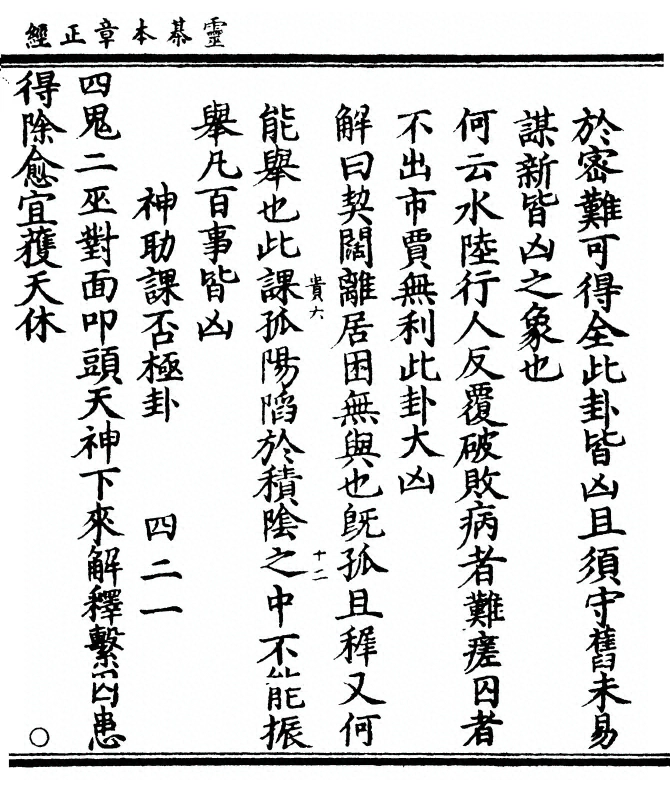 靈棊本章正經
於密難可得全此卦皆凶且須守舊未易
謀新皆凶之象也
何云水陸行人反覆破敗病者難瘥囚者
不出市賈無利此卦大凶
解曰契闊離居困無與也既孤且穉又何
能舉也此課孤陽陷於積陰之中不能振
貴六
十二
舉凡百事皆凶
神助課否極卦 四二一
四鬼二巫對面叩頭天神下來解釋繫囚患
得除愈宜蒦天休